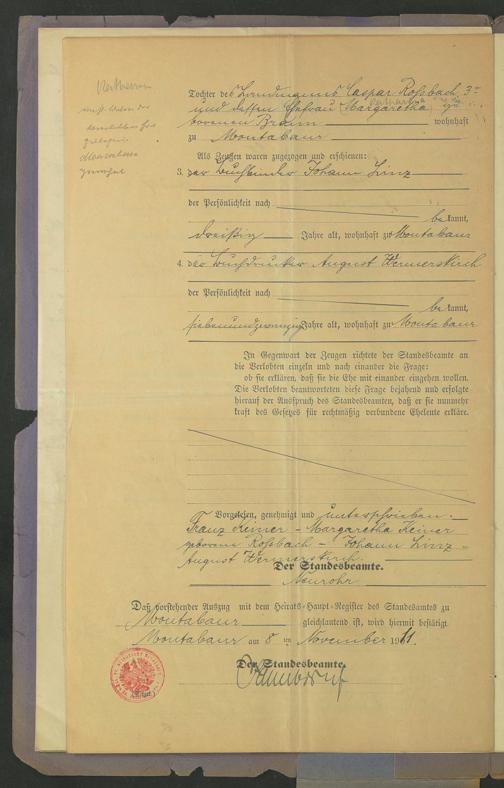 Tochter des Caspar Roßbach
und dessen Ehefrau Margaretha
borenen Braun wohnhaft
zu Montabaur
Als Zeugen waren zugezogen und erschienen:
3. der Johann Linz
der Persönlichkeit nach
bekannt,
dreißig Jahre alt, wohnhaft zu Montabaur
4. der Buchdrucker August Wermerskirch
der Persönlichkeit nach
bekannt,
siebenundzwanzig Jahre alt, wohnhaft zu Montabaur
In Gegenwart der Zeugen richtete der Standesbeamte an
die Verlobten einzeln und nach einander die Frage:
ob sie erklären, daß sie die Ehe mit einander eingehen wollen.
Die Verlobten beantworteten diese Frage bejahend und erfolgte
hierauf der Ausspruch des Standesbeamten, daß er sie nunmehr
kraft des Gesetzes für rechtmäßig verbundene Eheleute erkläre.
Vorgelesen, genehmigt und unterschrieben.
Franz Keiner - Margaretha Keiner
geborene Roßbach - Johann Linz -
August Wermerskirch.
Der Standesbeamte.
Neurohr
Daß vorstehender Auszug mit dem Heirats-Haupt-Register des Standesamtes zu
Montabaur gleichlautend ist, wird hiermit bestätigt.
Montabaur am 8 ten November 1911.
Der Standesbeamte.